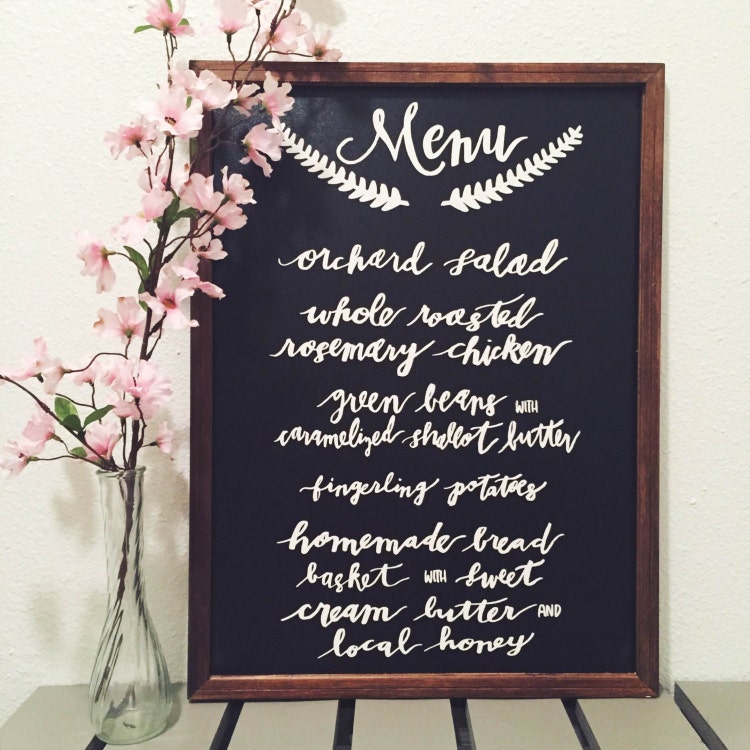 Menu
orchard salad
whole roasted
rosemary chicken
green beans WITH
caramelized shallot butter
fingerling potatoes
homemade bread
basket WITH sweet
cream butter AND
local honey